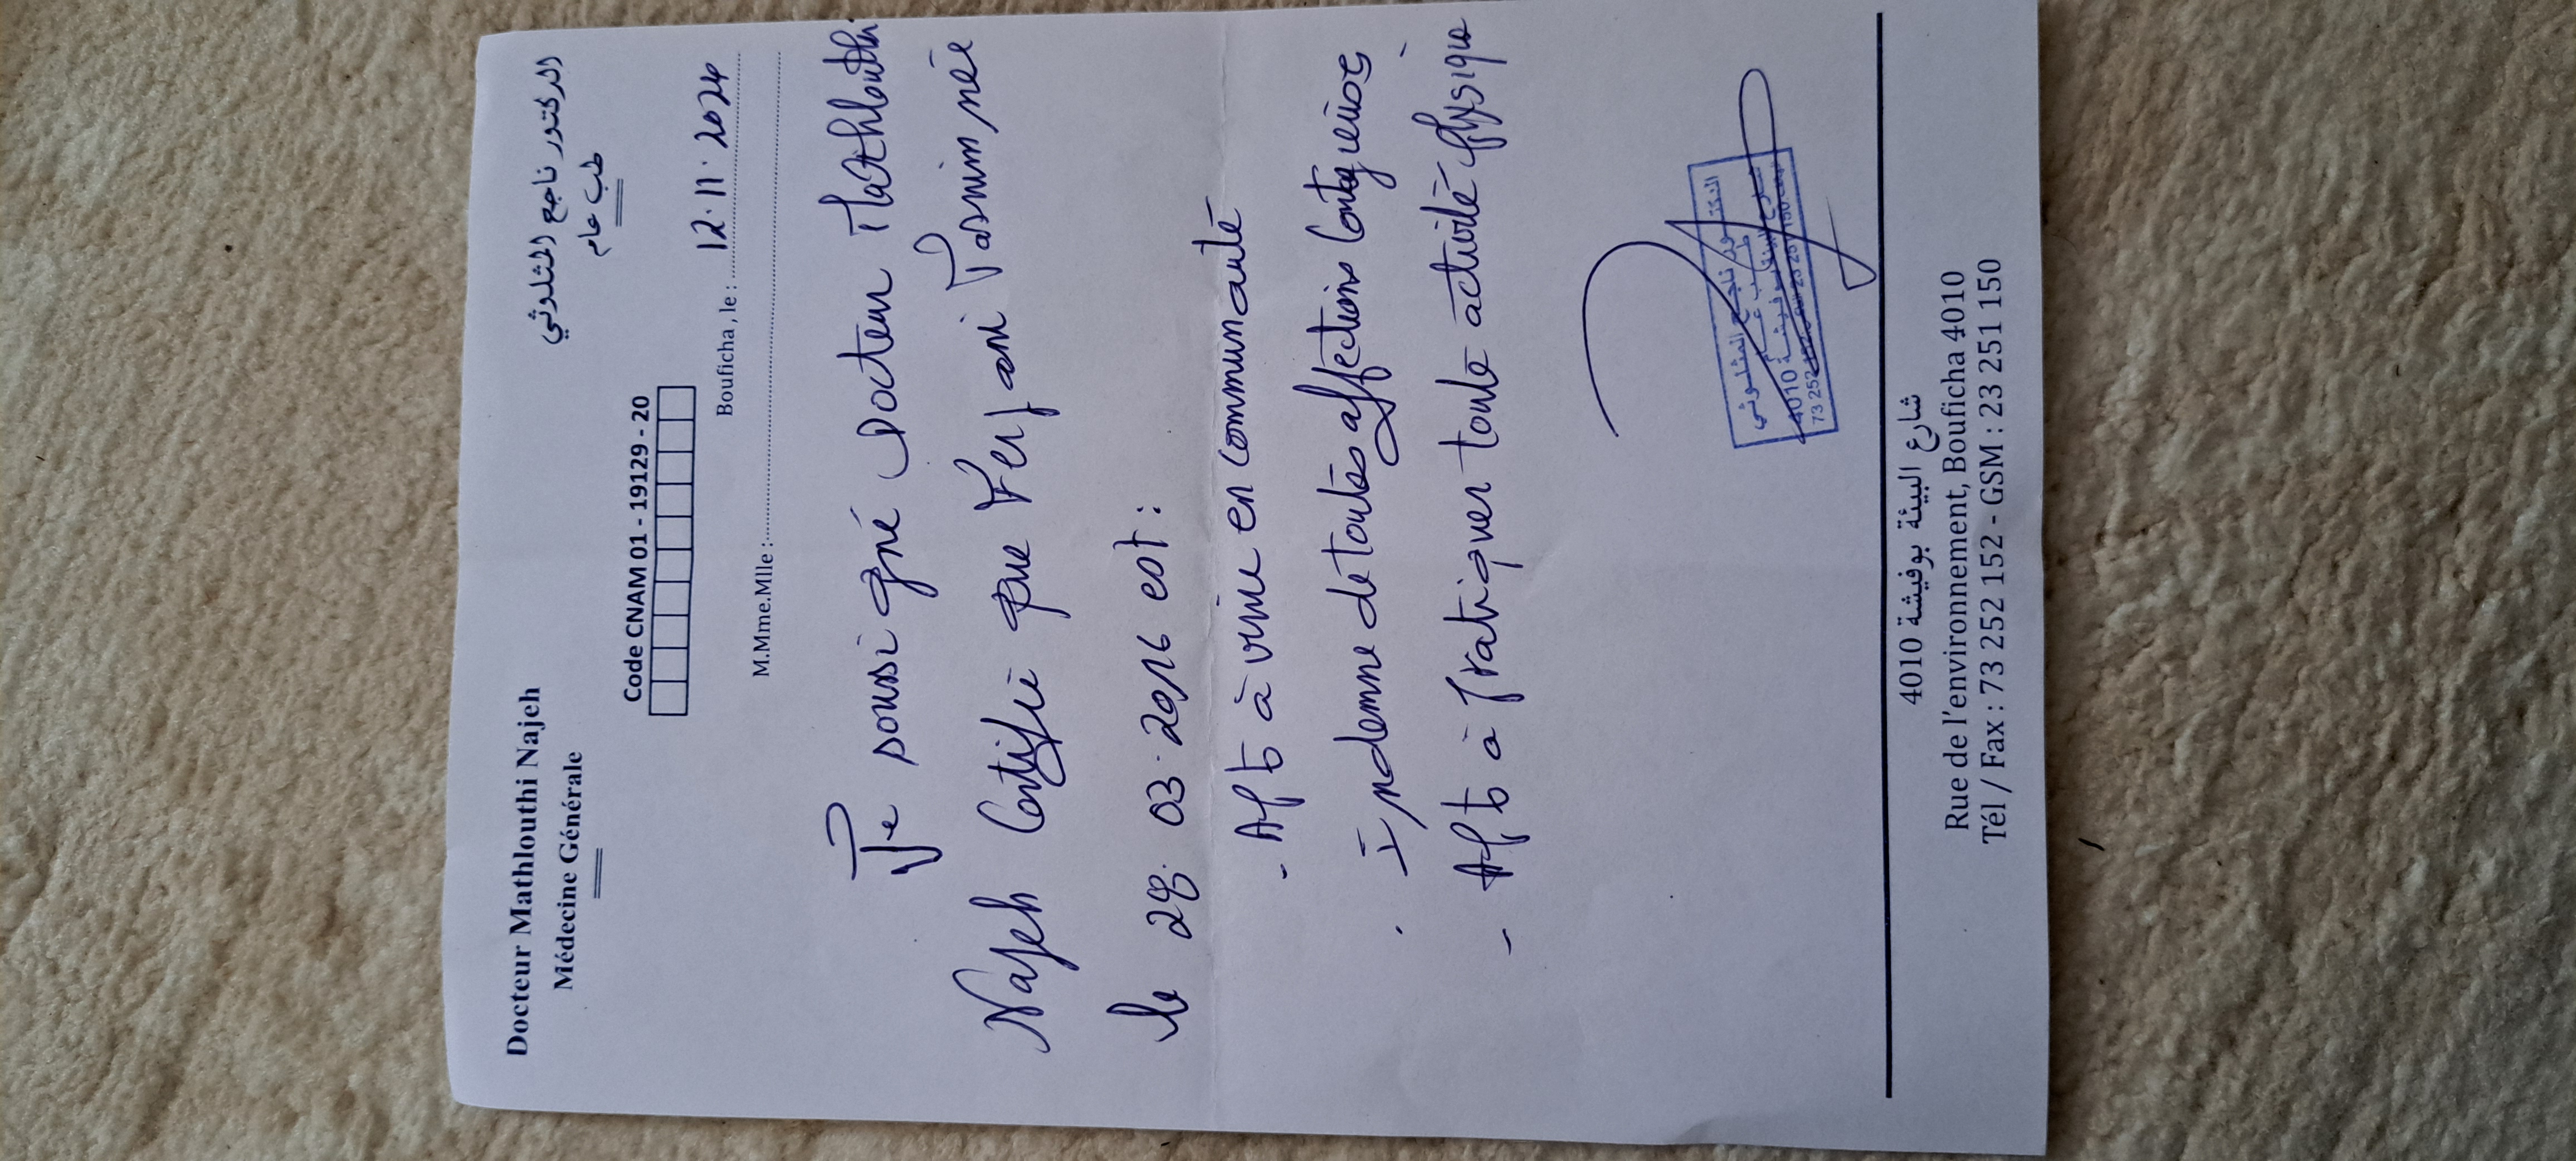 Docteur Mathlouthi Najeh
Médecine Générale
الدكتور ناجع المثلوثي
طب عام
Code CNAM 01 - 19129 - 20
Bouficha, le : 12.11.2024
M.Mme.Mlle :
Je soussigné Docteur Mathlouthi
Najeh Certifie que Ferjani Yasmin née
le 28.03.2016 est :
- Apt à vivre en communauté
- Indemne de toutes affections Contagieuses
- Apt à Pratiquer toute activité physique
الدكتور ناجع المثلوثي
طب عام
4010
شارع البيئة بوفيشة 4010
Rue de l'environnement, Bouficha 4010
Tél / Fax : 73 252 152 - GSM : 23 251 150